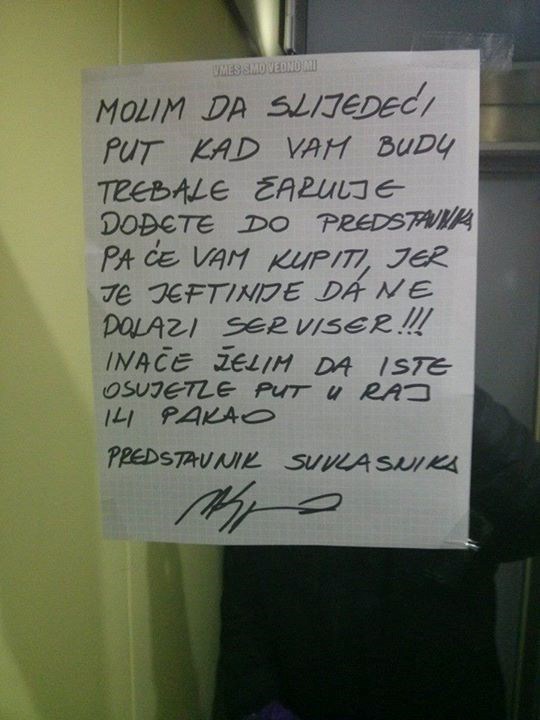 VMES SMO VEDNO MI
MOLIM DA SLIJEDEĆI
PUT KAD VAM BUDU
TREBALE ŽARULJE
DOĐETE DO PREDSTAVNIKA
PA ĆE VAM KUPITI, JER
JE JEFTINIJE DA NE
DOLAZI SERVISER!!!
INAČE ŽELIM DA ISTE
OSVJETLE PUT U RAJ
ILI PAKAO
PREDSTAVNIK SUVLASNIKA